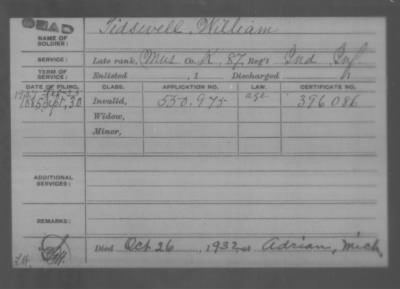 DEAD
NAME OF SOLDIER: Tidswell, William
SERVICE: Late rank, Mus Co. K, 87 Reg't Ind Inf
TERM OF SERVICE: Enlisted , 1 Discharged , 1
DATE OF FILING. CLASS. APPLICATION NO. LAW. CERTIFICATE NO.
1885, Sept, 30 Invalid, 550.975 age 396 086
Widow,
Minor,
ADDITIONAL SERVICES:
REMARKS:
Died Oct 26, 1932, at Adrian, Mich